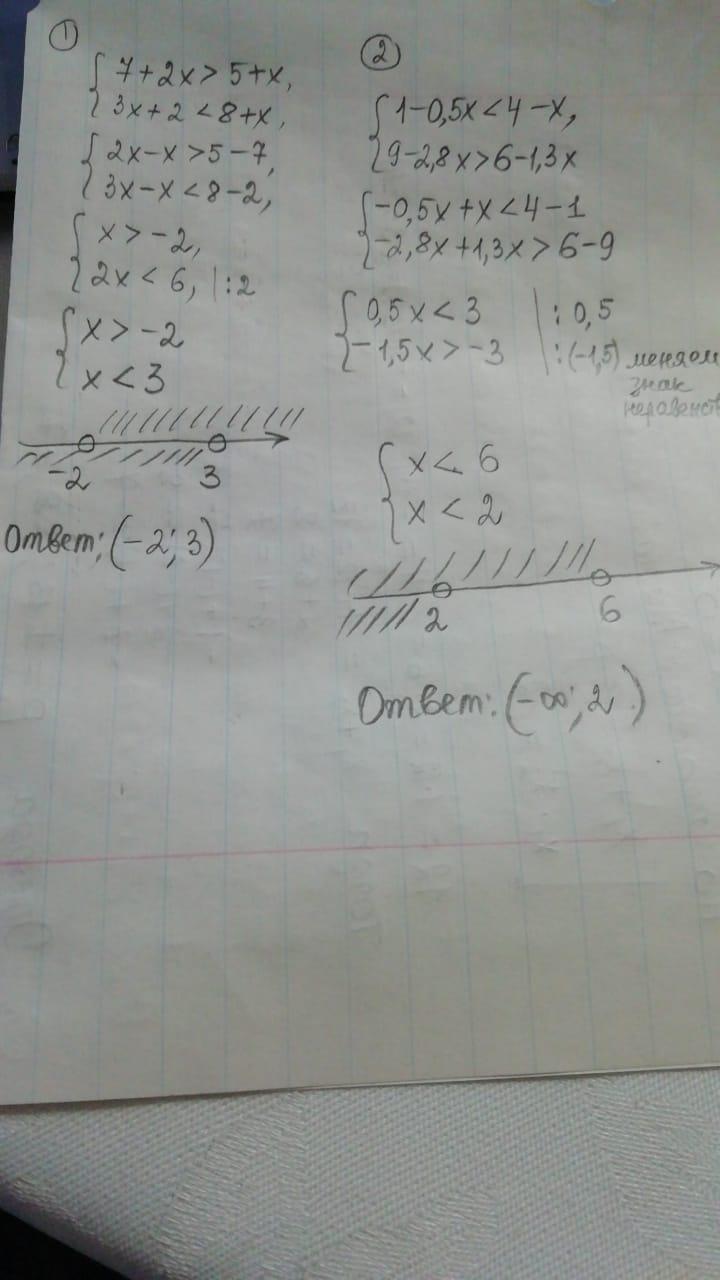 1
{ 7+2x>5+x,
{ 3x+2<8+x,
{ 2x-x>5-7,
{ 3x-x<8-2,
{ x>-2,
{ 2x<6, |:2
{ x>-2
{ x<3
-2 3
Ответ: (-2; 3)
2
{ 1-0,5x<4-x,
{ 9-2,8x>6-1,3x
{ -0,5x+x<4-1
{ -2,8x+1,3x>6-9
{ 0,5x<3 |:0,5
{ -1,5x>-3 |:(-1,5) меняем
знак
неравенств
{ x<6
{ x<2
2 6
Ответ: (-∞; 2)